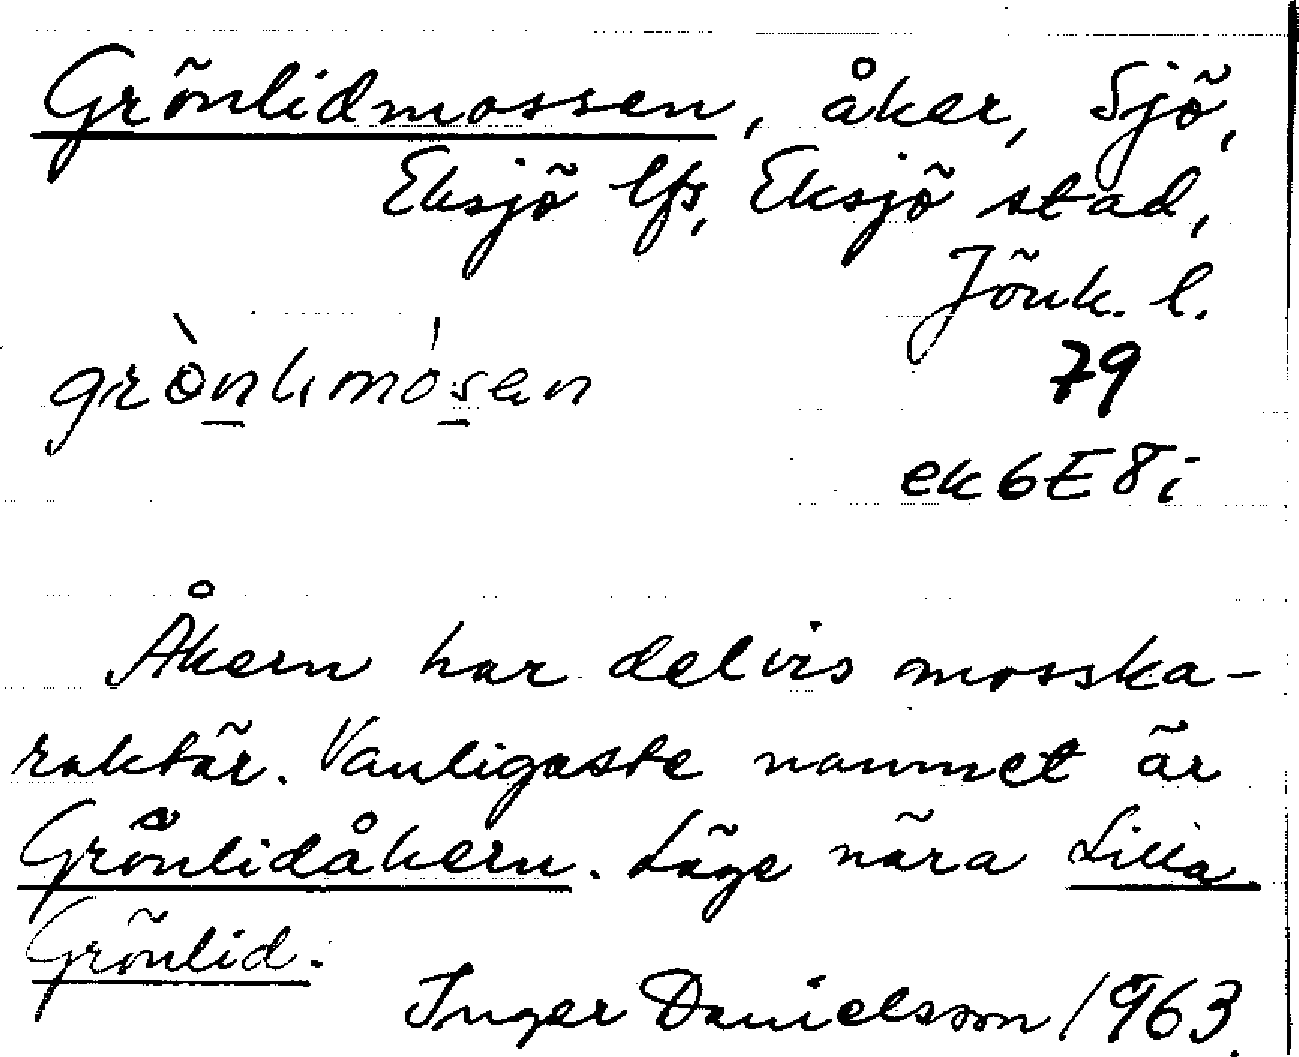 Grönlidmossen, åker, Sjö,
Eksjö lfs, Eksjö stad,
Jönk. l.
79
ek6E8i
Åkern har delvis mosska-
raktär. Vanligaste namnet är
Grönlidåkern. Läge nära Lilla
Grönlid.
Inger Danielsson 1963.